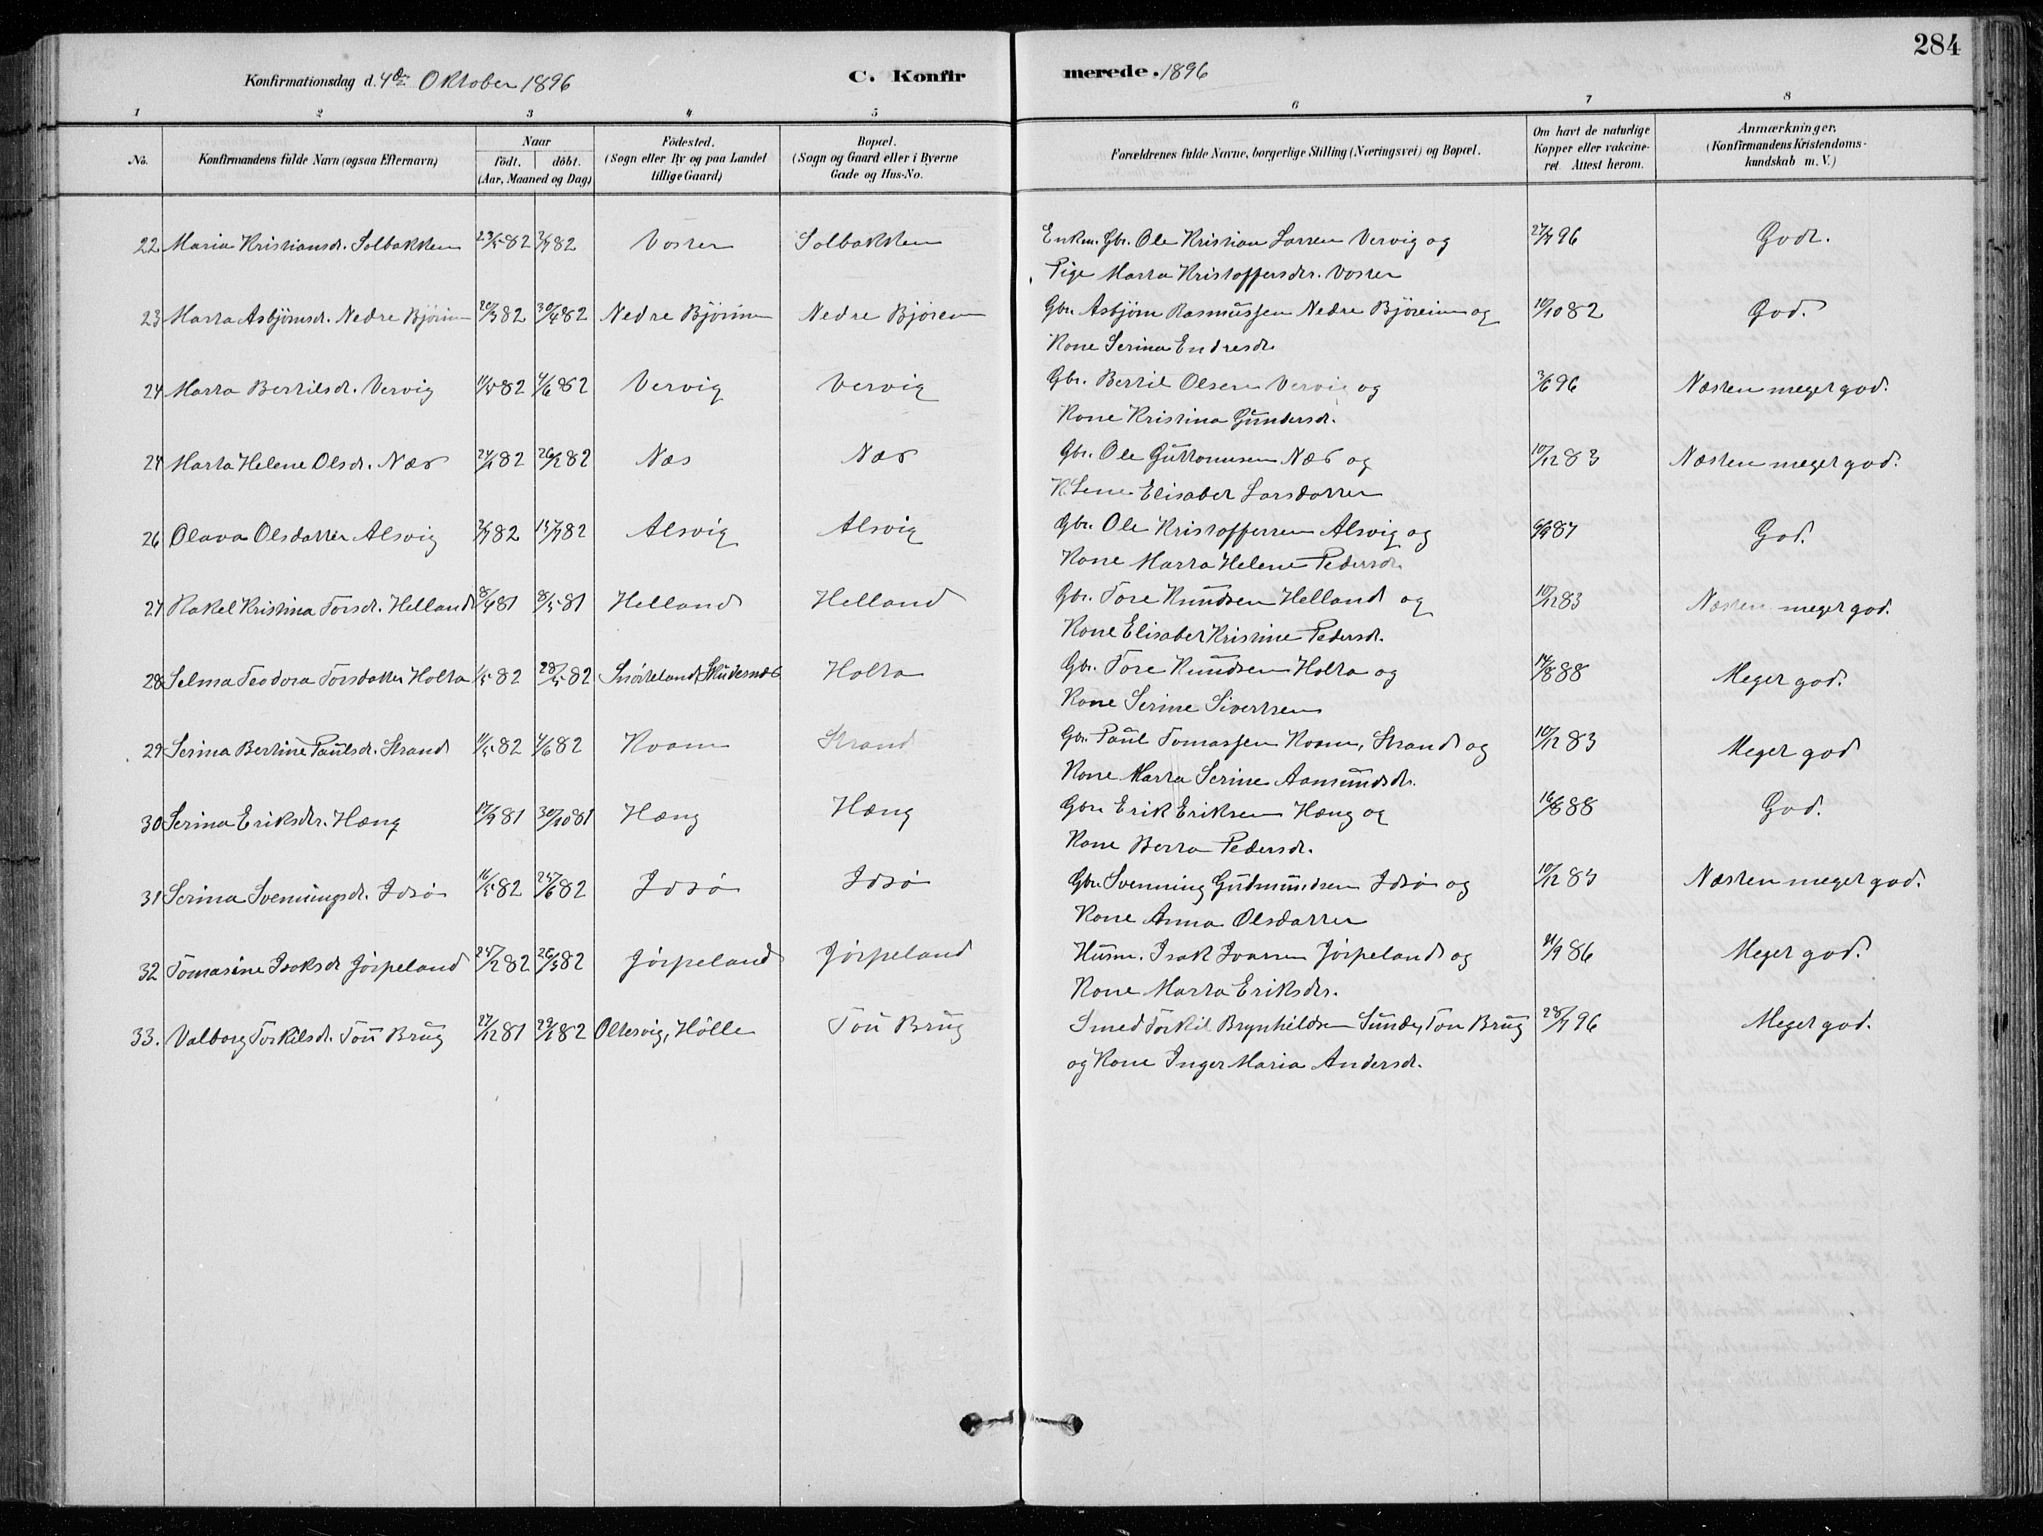 284
Konfirmationsdag d. 4de Oktober 1896 C. Konfirmerede. 1896
1 2 3 4 5 6 7 8
No. Konfirmandens fulde Navn (ogsaa Efternavn) Naar födt. döbt. (Aar, Maaned og Dag) Födested. (Sogn eller By og paa Landet tillige Gaard) Bopæl. (Sogn og Gaard eller i Byerne Gade og Hus-No. Forældrenes fulde Navne, borgerlige Stilling (Næringsvei) og Bopæl. Om havt de naturlige Kopper eller vakcineret Attest herom. Anmærkninger. (Konfirmandens Kristendomskundskab m. V.)
22 Maria Kristiansdr. Solbakken 23/5 82 2/7 82 Voster Solbakken Enkm. Gbr. Ole Kristian Larsen Vervig og 27/7 96 Godt.
Pige Marta Kristoffersdtr. Voster
23 Marta Asbjörnsdr. Nedre Björeim 20/3 82 30/4 82 Nedre Björeim Nedre Björeim Gbr. Asbjörn Rasmussen Nedre Björeim og 10/10 82 God.
Kone Serina Endresdr.
24 Marta Bertilsdr. Vervig 11/5 82 4/6 82 Vervig Vervig Gbr. Bertil Olsen Vervig og 3/6 96 Næsten meget god.
Kone Kristina Gundersdr.
24 Marta Helene Olsdr. Næs 24/1 82 26/2 82 Næs Næs Gbr. Ole Guttormsen Næs og 10/12 83 Næsten meget god.
K. Lene Elisabet Larsdatter
26 Olava Olsdatter Alsvig 2/7 82 15/7 82 Alsvig Alsvig Gbr. Ole Kristoffersen Alsvig og 6/9 87 God.
Kone Marta Helene Pedersdr.
27 Rakel Kristina Torsdr. Helland 8/4 81 8/5 81 Helland Helland Gbr. Tore Knudsen Helland og 10/12 83 Næsten meget god.
Kone Elisabet Kristine Pedersdr.
28 Selma Teodora Torsdatter Holta 1/5 82 28/5 82 Snörteland, Skudesnæs Holta Gbr. Tore Knudsen Holta og 14/8 88 Meget god.
Kone Serine Sivertsen
29 Serina Bertine Paulsdr. Strand 11/5 82 4/6 82 Kvam Strand Gbr. Paul Tomassen Kvam, Strand og 10/12 83 Meget god
Kone Marta Serine Aamundsdr.
30 Serina Eriksdtr. Hæng 17/9 81 30/10 81 Hæng Hæng Gbr. Erik Eriksen Hæng og 16/8 88 God.
Kone Berta Pedersdr.
31 Serina Svenningsdr. Idsö 16/5 82 25/6 82 Idsö Idsö Gbr. Svenning Gudmundsen Idsö og 10/12 83 Næsten meget god.
Kone Anna Olsdatter
32 Tomasine Isaksdr Jörpeland 25/2 82 26/3 82 Jörpeland Jörpeland Husm. Isak Ivarsen Jörpeland og 21/9 86 Meget god.
Kone Marta Eriksdtr.
33. Valborg Torkilsdr. Tou Brug 27/12 81 29/1 82 Oltesvig, Hölle Tou Brug Smed Torkil Brynhildsen Sunde, Tou Brug 28/7 96 Meget god.
og Kone Inger Maria Andersdr.